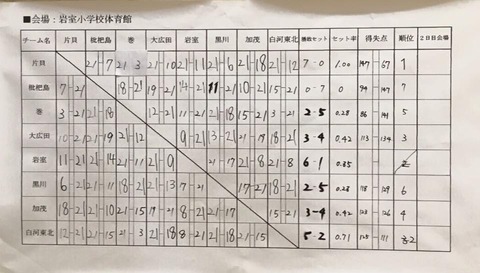 ■会場：岩室小学校体育館
チーム名 片貝 枇杷島 巻 大広田 岩室 黒川 加茂 白河東北 勝敗セット セット率 得失点 順位 2日目会場
片貝 21-7 21 3 21-10 21-11 21-6 21-18 21-12 7-0 1.00 147-67 1
枇杷島 7-21 18-21 19-21 14-21 11-21 10-21 15-21 0-7 0 94-147 7
巻 3-21 21-18 12-21 11-21 21-18 15-21 3-21 2-5 0.28 86-141 5
大広田 10-21 21-19 21-12 9-21 13-21 21-19 18-21 3-4 0.42 113-134 3
岩室 11-21 21-14 21-11 21-9 21-17 21-8 21-8 6-1 0.85
黒川 6-21 21-11 18-21 21-13 17-21 17-21 18-21 2-5 0.28 118-129 6
加茂 18-21 21-10 21-15 19-21 8-21 21-17 15-21 3-4 0.42 123-126 4
白河東北 12-21 21-15 21-3 21-18 8-21 21-18 21-15 5-2 0.71 125-111 2